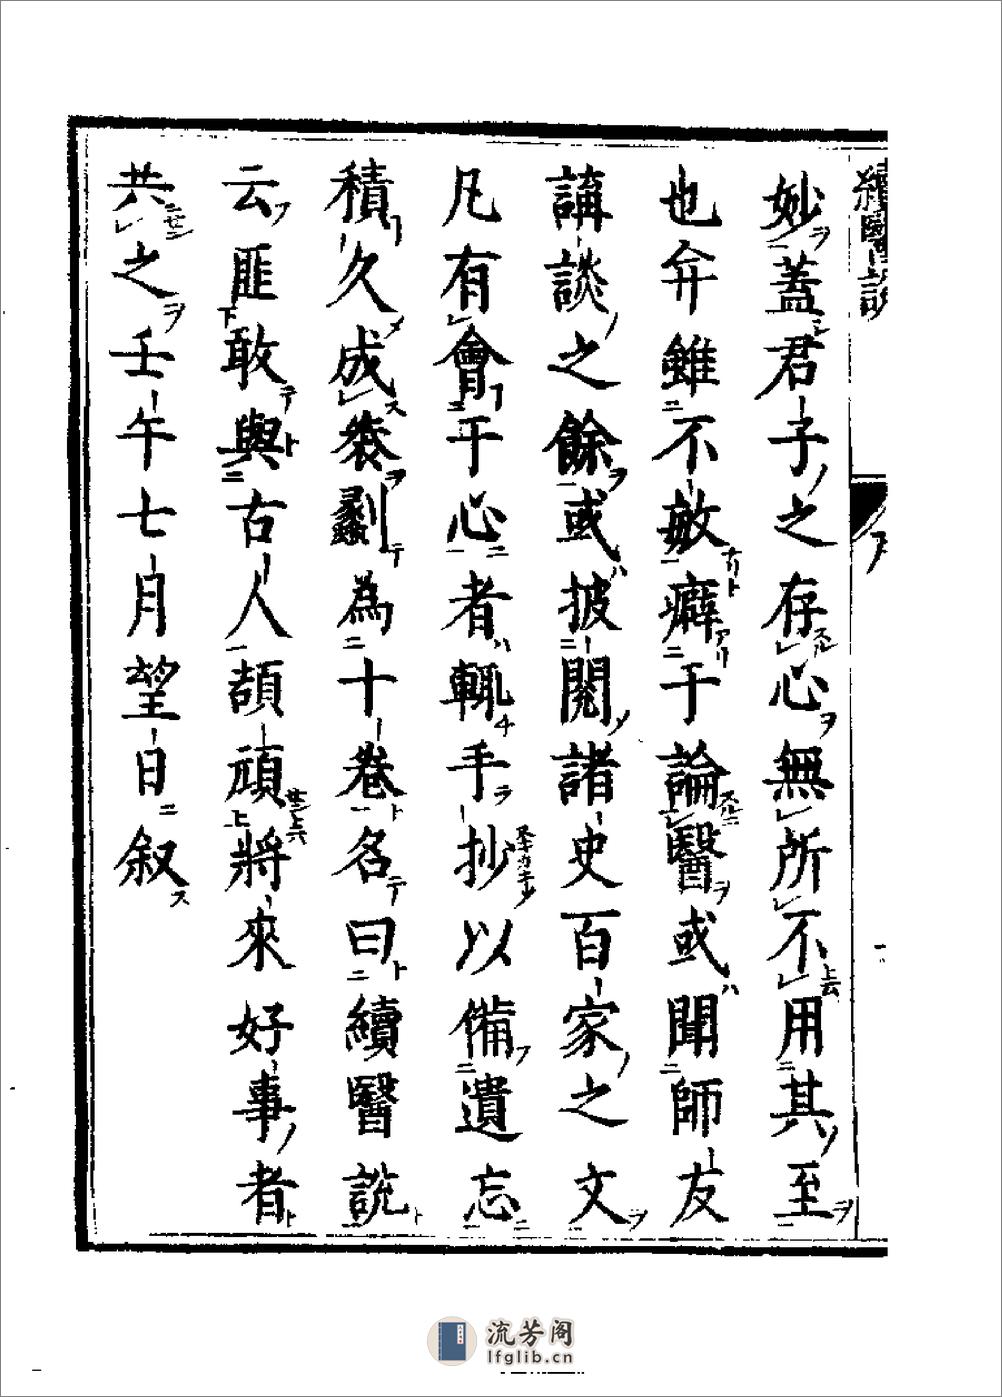 續醫說
妙蓋君子之存心無所不用其至
也弁雖不敏癖于論醫或聞師友
講談之餘或披閱諸史百家之文
凡有會于心者輙手抄以備遺忘
積久成袠剝為十卷名曰續醫說
云匪敢與古人頡頏將來好事者
共之壬午七月望日叙
流芳阁
lfglib.cn